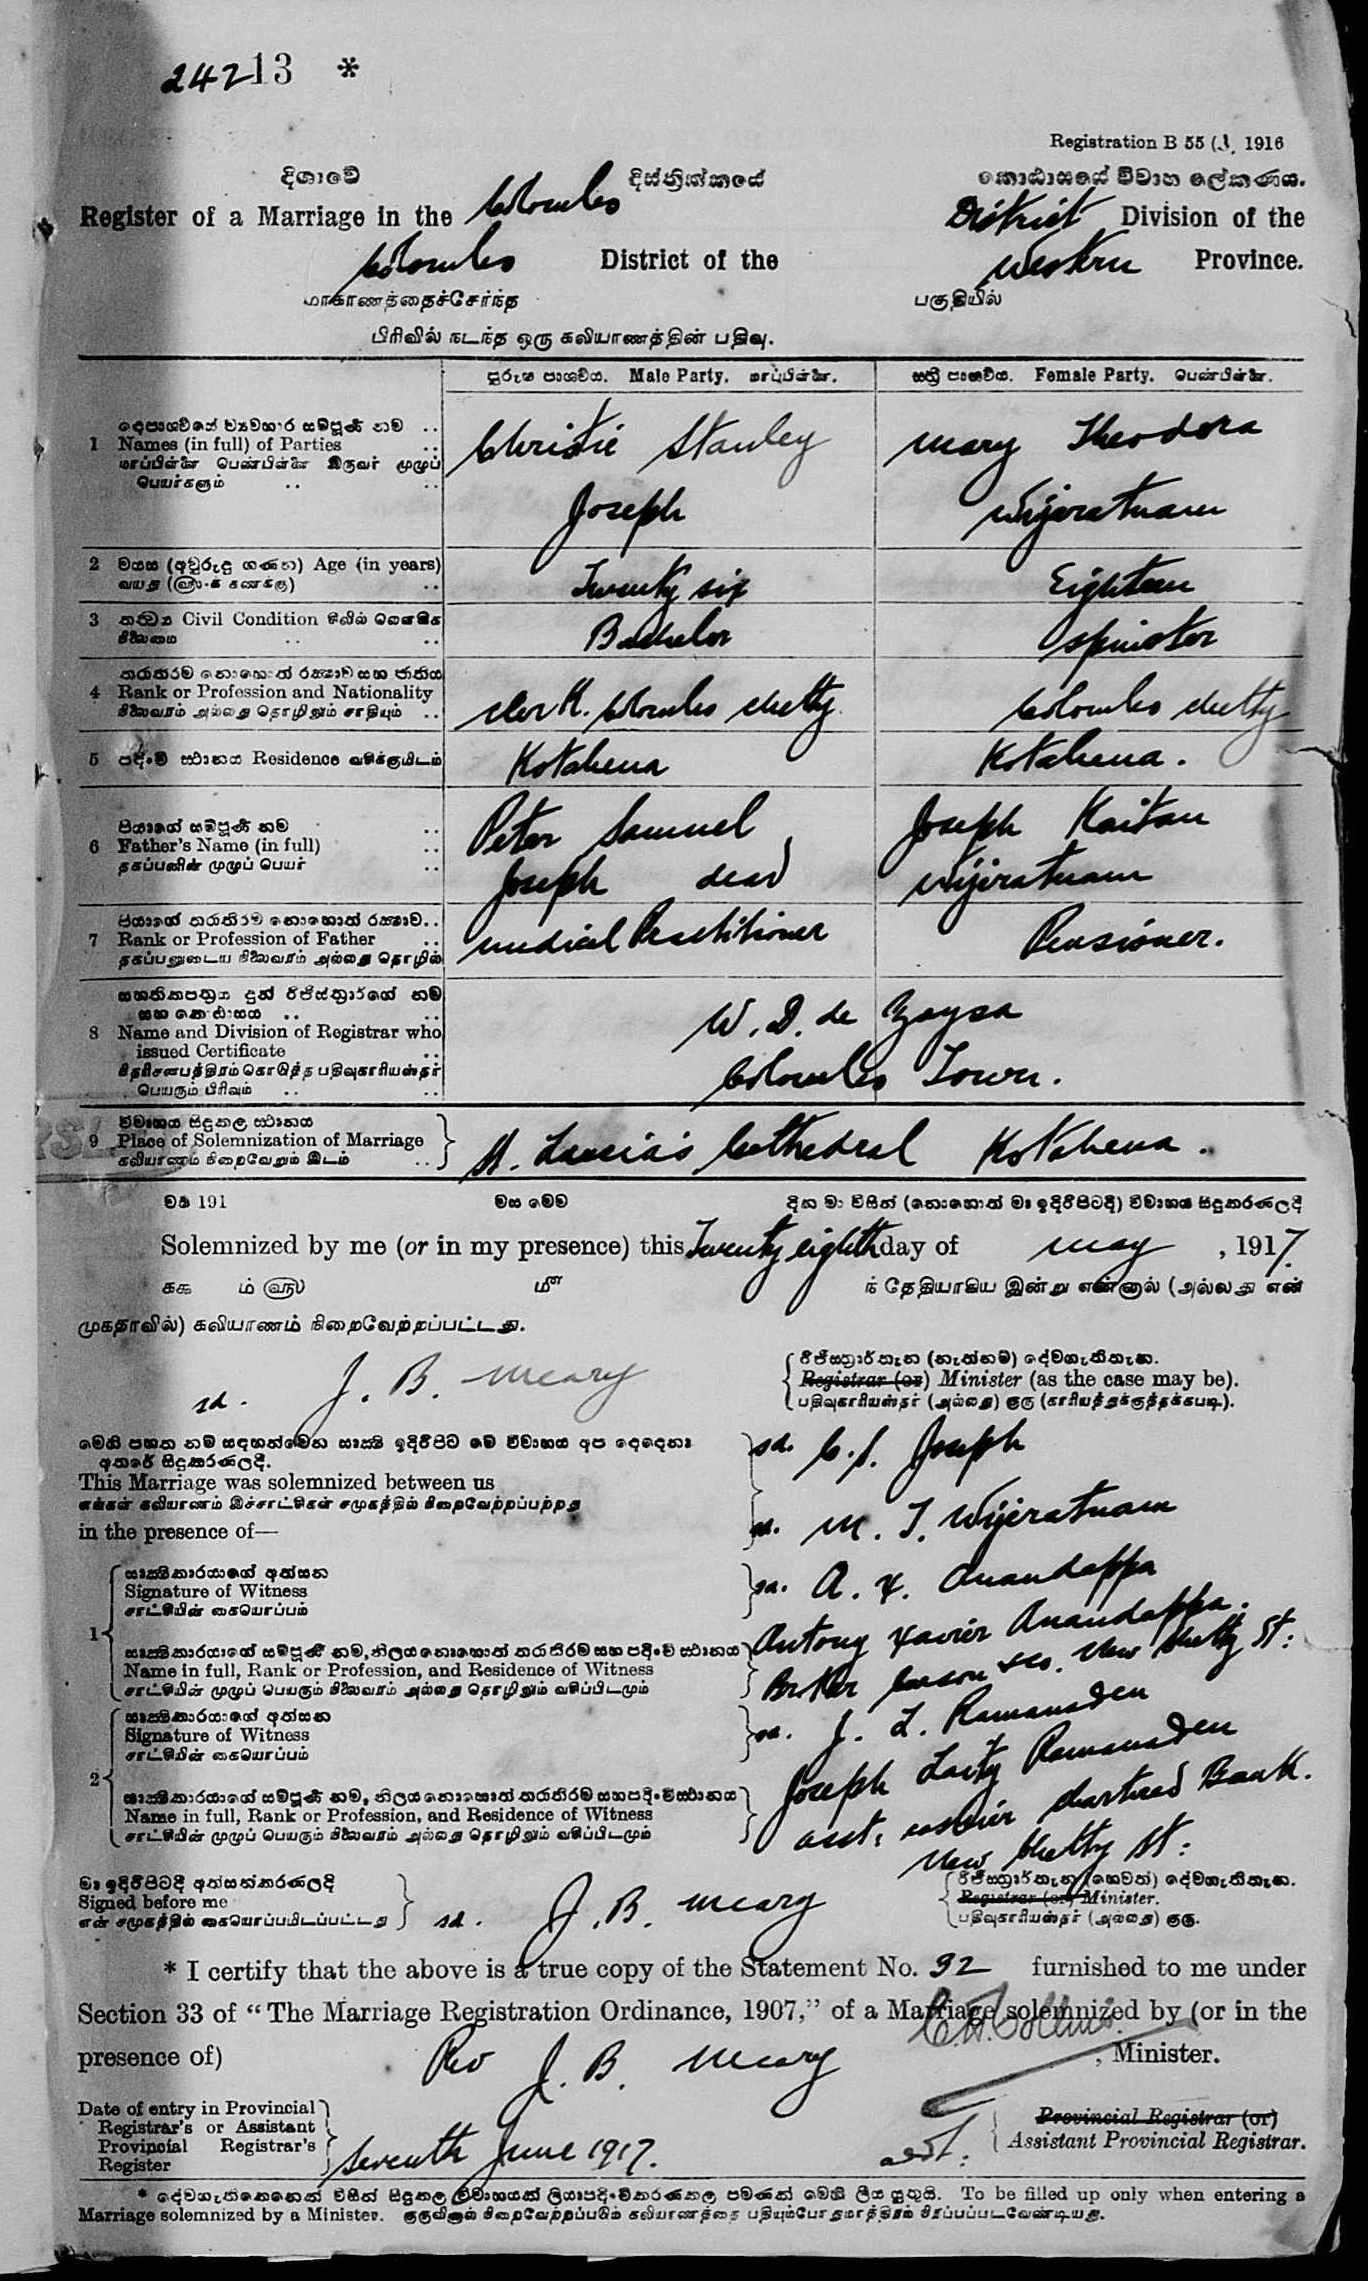 24213 *
Registration B 55 (3, 1916
දිශාවේ දිස්ත්‍රික්කයේ කොඨාසයේ විවාහ ලේකණය.
Register of a Marriage in the Colombo District Division of the
Colombo District of the Western Province.
மாகாணத்தைச்சேர்ந்த பகுதியில்
பிரிவில் நடந்த ஒரு கலியாணத்தின் பதிவு.
පුරුෂ පාශ්වය. Male Party. மாப்பிள்ளை. ස්ත්‍රී පාශ්වය. Female Party. பெண்பிள்ளை.
දෙපාශ්වයේ ව්‍යවහාර සම්පූර්ණ නම ..
1 Names (in full) of Parties .. Christie Stanley Mary Theodora
மாப்பிள்ளை பெண்பிள்ளை இருவர் முழுப்
பெயர்களும் .. .. Joseph Wijeratnam
2 වයස (අවුරුදු ගණන) Age (in years) Twenty six Eighteen
வயது (வருடக் கணக்கு) ..
3 තත්වය Civil Condition சிவில் லௌகிக Bachelor Spinster
நிலைமை .. ..
තරාතිරම නොහොත් රක්ෂාව සහ ජාතිය
4 Rank or Profession and Nationality Clerk. Colombo Chetty. Colombo Chetty
நிலைவரம் அல்லது தொழிலும் சாதியும் ..
5 පදිංචි ස්ථානය Residence வசிக்குமிடம் Kotahena Kotahena.
පියාගේ සම්පූර්ණ නම ..
6 Father's Name (in full) .. Peter Samuel Joseph Kaitan
தகப்பனின் முழுப் பெயர் .. Joseph dead Wijeratnam
පියාගේ තරාතිරම නොහොත් රක්ෂාව ..
7 Rank or Profession of Father .. Medical Practitioner Pensioner.
தகப்பனுடைய நிலைவரம் அல்லது தொழில்
සහතිකපත්‍රය දුන් රෙජිස්ත්‍රාර්ගේ නම
සහ කොඨාසය .. ..
8 Name and Division of Registrar who W. D. de Zoysa
issued Certificate ..
அத்தாட்சிப்பத்திரம் கொடுத்த பதிவுகாரியஸ்தர் Colombo Town.
பெயரும் பிரிவும் .. ..
විවාහය සිදුකල ස්ථානය
9 Place of Solemnization of Marriage St. Lucia's Cathedral Kotahena.
கலியாணம் நிறைவேறும் இடம் ..
වර්ෂ 191 මස මෙම දින මා විසින් (නොහොත් මා ඉදිරිපිටදී) විවාහය සිදුකරණලදී
Solemnized by me (or in my presence) this Twenty eighth day of May, 1917.
ககக ம் வரு மீ ந் தேதியாகிய இன்று என்னால் (அல்லது என்
முகதாவில்) கலியாணம் நிறைவேற்றப்பட்டது.
රෙජිස්ත්‍රාර්තැන (නැත්නම්) දේවගැතිතැන.
sd. J. B. Meary Registrar (or) Minister (as the case may be).
பதிவுகாரியஸ்தர் (அல்லது) குரு (காரியத்துக்குத்தக்கபடி).
මෙහි පහත නම් සඳහන්වෙන සාක්ෂි ඉදිරිපිට මේ විවාහය අප දෙදෙනා
අතරේ සිදුකරණලදී. sd. C. S. Joseph
This Marriage was solemnized between us
எங்கள் கலியாணம் இச்சாட்சிகள் சமுகத்தில் நிறைவேற்றப்பற்றது
in the presence of— sd. M. T. Wijeratnam
සාක්ෂිකාරයාගේ අත්සන
Signature of Witness sd. A. X. Anandappa
சாட்சியின் கையொப்பம்
1 සාක්ෂිකාරයාගේ සම්පූර්ණ නම, නිලය නොහොත් තරාතිරම සහ පදිංචි ස්ථානය Antony Xavier Anandappa.
Name in full, Rank or Profession, and Residence of Witness
சாட்சியின் முழுப் பெயரும் நிலைவரம் அல்லது தொழிலும் வசிப்பிடமும் Broker Carson & Co. New Chetty St:
සාක්ෂිකාරයාගේ අත්සන
Signature of Witness sd. J. L. Ramanaden
சாட்சியின் கையொப்பம்
2 සාක්ෂිකාරයාගේ සම්පූර්ණ නම, නිලය නොහොත් තරාතිරම සහ පදිංචි ස්ථානය Joseph Ramanaden
Name in full, Rank or Profession, and Residence of Witness asst: cashier Chartered Bank.
சாட்சியின் முழுப் பெயரும் நிலைவரம் அல்லது தொழிலும் வசிப்பிடமும்
New Chetty St:
මා ඉදිරිපිටදී අත්සන්කරණලදී රෙජිස්ත්‍රාර්තැන (හෙවත්) දේවගැතිතැන.
Signed before me sd. J. B. Meary Registrar (or) Minister.
என் சமுகத்தில் கையொப்பமிடப்பட்டது பதிவுகாரியஸ்தர் (அல்லது) குரு.
* I certify that the above is a true copy of the Statement No. 32 furnished to me under
Section 33 of "The Marriage Registration Ordinance, 1907," of a Marriage solemnized by (or in the
presence of) Rev J. B. Meary, Minister.
C. H. Collins
Date of entry in Provincial
Registrar's or Assistant Provincial Registrar (or)
Provincial Registrar's asst: Assistant Provincial Registrar.
Register Seventh June 1917.
* දේවගැතිකෙනෙක් විසින් සිදුකල විවාහයක් ලියාපදිංචිකරණකල පමණක් මෙහි ලිය යුතුයි. To be filled up only when entering a
Marriage solemnized by a Minister. குருவினால் நிறைவேற்றப்படும் கலியாணத்தை பதியும்போதுமாத்திரம் நிரப்பப்படவேண்டியது.